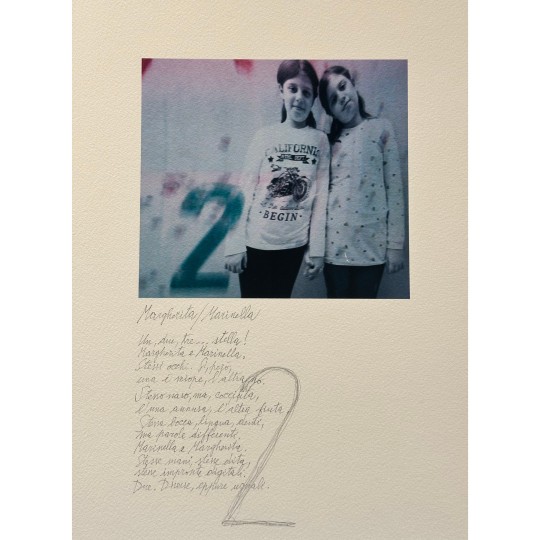 CALIFORNIA
BEGIN
2
Margherita/Marinella
Un, due, tre... stella!
Margherita e Marinella.
Stessi occhi.
una è miope, l'altra no.
Stesso naso, ma,
l'una annusa, l'altra fiuta
Stessa bocca, lingua, denti,
ma parole differenti.
Marinella e Margherita.
Stesse mani, stesse dita,
stesse impronte digitali.
Due. Diverse, eppure uguali.
2